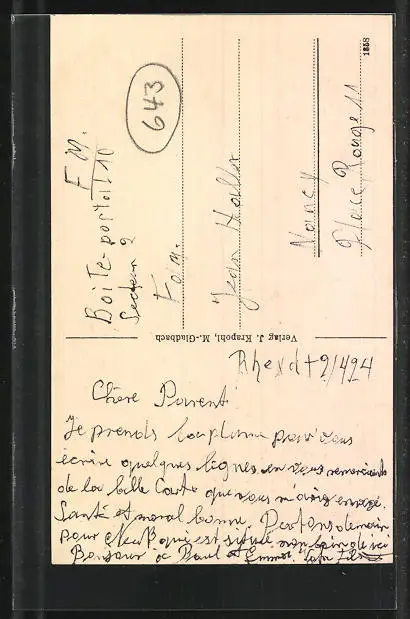 F. M.
Boite-postal 10
Secteur 2
643
Fam.
Jean Haller
Nancy
Place Rouge 11
1358
Verlag J. Krapohl, M.-Gladbach
Rheydt 2/4 24
Chere Parent
Je prends la plume pour vous
écrire quelques lignes en vous remerciant
de la belle Carte que vous m'avez envoyé.
Santé et moral bonne. Partons demain
pour qui est situé non loin de ici
Bonjour a Paul et Emma. fils